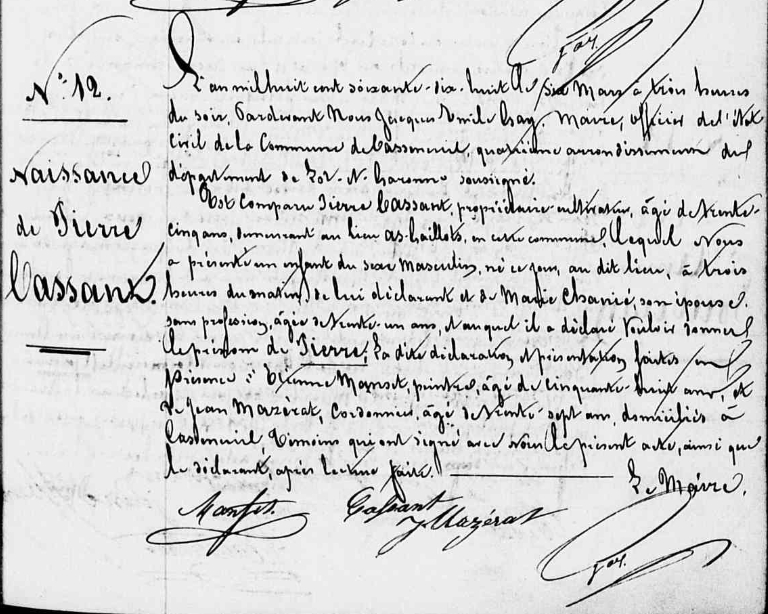 N° 12.
Naissance
de Pierre
Cassant.
L'an mil huit cent soixante-dix-huit le six Mars à trois heures
du soir, Pardevant Nous Jacques Emile Maire, officier de l'Etat
Civil de la Commune de Casseneuil, quatrième arrondissement du
département de Lot-&-Garonne soussigné.
Est Comparu Pierre Cassant, propriétaire-cultivateur, âgé de trente-
cinq ans, demeurant au lieu as-Caillots, en cette commune, lequel Nous
a présenté un enfant du sexe Masculin, né ce jour, au dit lieu, à trois
heures du matin, de lui déclarant et de Marie Chanié, son épouse,
sans profession, âgée de trente-un ans, et auquel il a déclaré vouloir donner
le prénom de Pierre; La dite déclaration et présentation faites en
présence : Etienne Manset, peintre, âgé de cinquante-huit ans, et
de Jean Mazérat, Cordonnier, âgé de trente-sept ans, domiciliés à
Casseneuil, Témoins qui ont signé avec nous le présent acte, ainsi que
le déclarant, après lecture faite.
Le Maire.
Manset. Cassant
J Mazérat